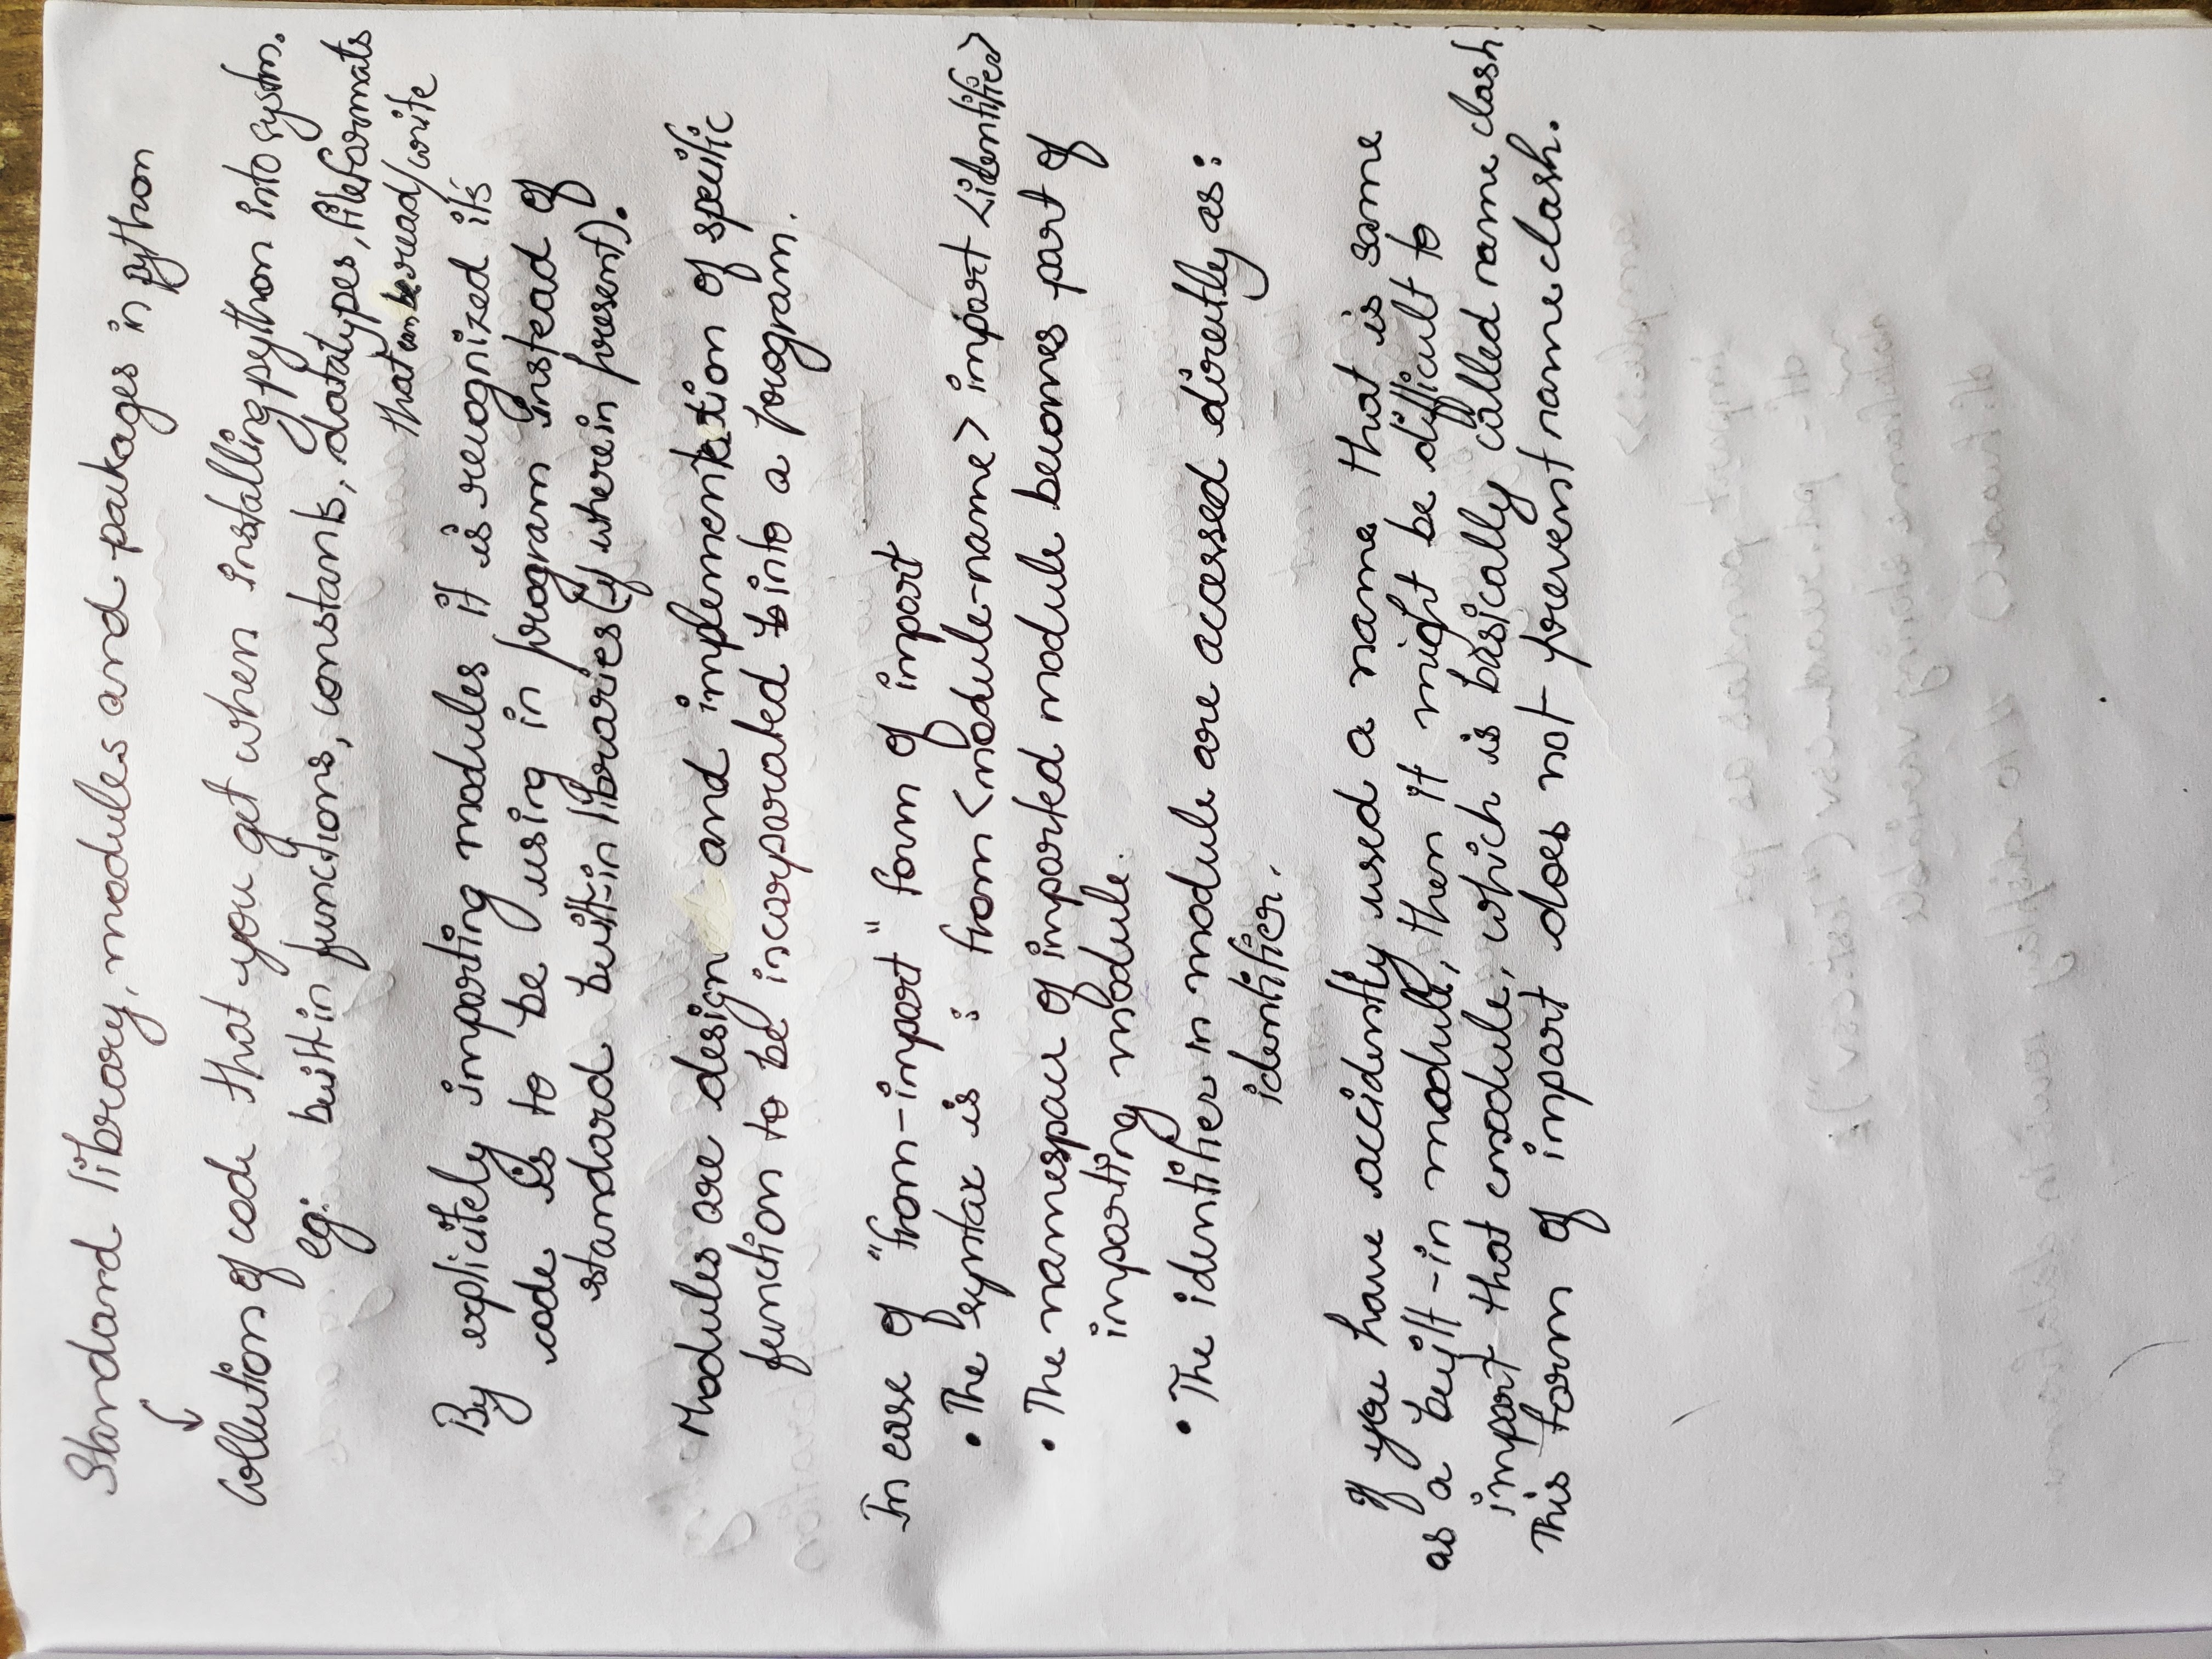 Standard library, modules and packages in python
Collection of code that you get when installing python into systm.
eg: built in functions, constants, datatypes, fileformats
that can be read/write
By explicitely importing modules it is recognized it's
code is to be using in program instead of
standard built-in libraries (if where in present).
Modules are design and implementation of specific
function to be incorporated into a program.
In case of "from-import" form of import
• The syntax is : from <module-name> import <identifier>
• The namespace of imported module becomes part of
importing module.
• The identifier in module are accessed directly as:
identifier.
If you have accidently used a name that is same
as a built-in module, then it might be difficult to
import that module, which is basically called name clash.
This form of import does not prevent name clash.